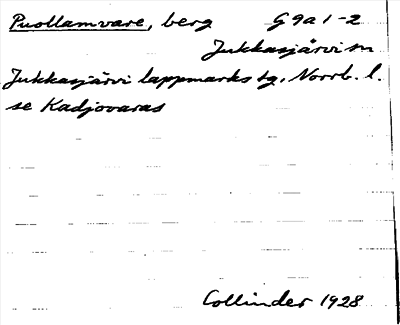 Puollamvare, berg G9a1-2
Jukkasjärvi sn
Jukkasjärvi lappmarks tg, Norrb. l.
se Kadjovaras
Collinder 1928